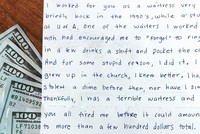 I worked for you as a waitress very
briefly back in the 1990's while a stu
at UGA, one of the waiters I worked
with had encouraged me to "forget" to ring
in a few drinks a shift and pocket the ca
And for some stupid reason, I did it. I
grew up in the church, I knew better, I ha
stolen a dime before then, nor have I sin
Thankfully, I was a terrible waitress and
you all fired me before it could amount
to more than a few hundred dollars total.